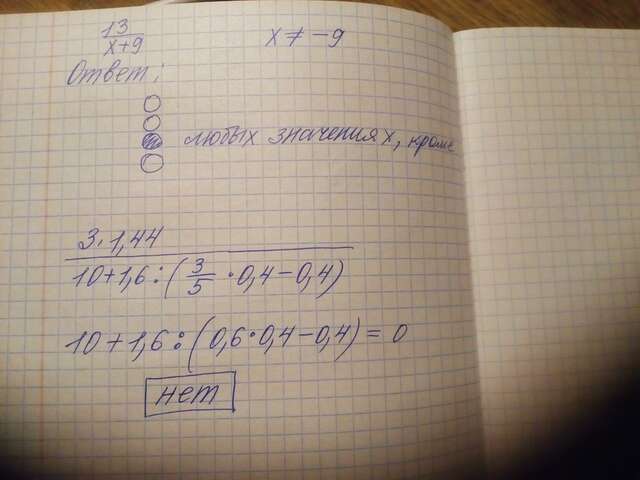 13/(x+9) x ≠ -9
Ответ:
любых значениях, кроме
3·1,44
10+1,6:(3/5·0,4-0,4)
10+1,6:(0,6·0,4-0,4)=0
нет